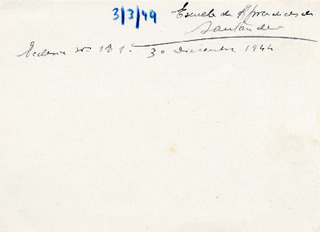 3/3/49 Escuela de Aprendices de
Santander
Ecclesia nº 181 - 30 Diciembre 1944